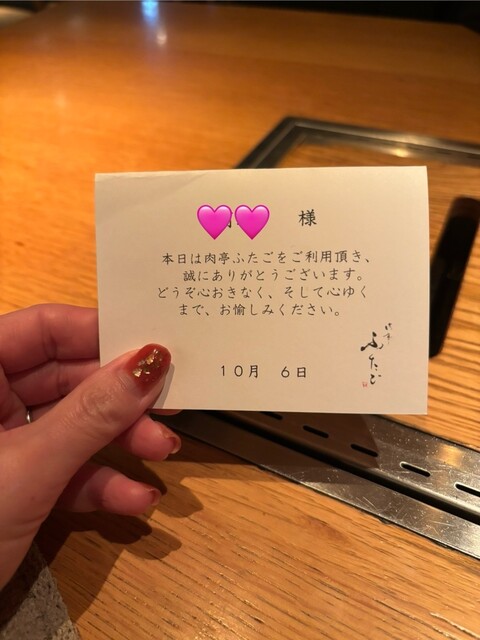 様
本日は肉亭ふたごをご利用頂き、
誠にありがとうございます。
どうぞ心おきなく、そして心ゆく
まで、お愉しみください。
肉亭
ふたご
10月 6日